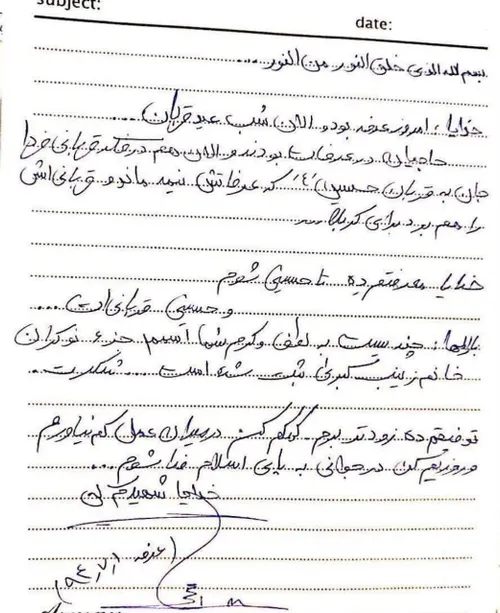 subject:
date:
بسم الله الذی خلق النور من النور....
خدایا، امروز عرفه بود و الان شب عید قربان....
حاجیان در عرفات بودند و الان هم در فکر قربانی فردا
جان به قربان حسین (ع) که عرفاتش نیمه ماند و قربانی‌اش
را هم برد برای کربلا...
خدایا معرفتم ده تا حسینی شوم
و حسینی قربانی‌ات....
بارالها، چندیست به لطف و کرم شما اسمم جزء نوکران
خانم زینب کبری ثبت شده است... شکرت..
توفیقم ده زودتر بروم. کمکم کن در میدان عمل کم نیاورم
و روزیم کن در جوانی به پای اسلام فدا شوم....
خدایا شهیدم کن
(عرفه ۹۴/۷/۱)